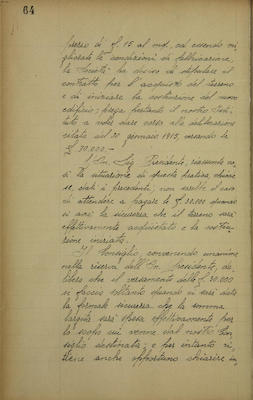 64
prezzo di £ 15 al mq. ed essendo mi
gliorate le condizioni di fabbricazione,
la Società ha deciso di stipulare il
contratto per l'acquisto del terreno
e di iniziare la costruzione del nuovo
edificio; prega pertanto il nostro Isti
tuto a voler dare corso alla deliberazione
citata del 30 gennaio 1915, versando le
£ 30.000 -
L'On. Sig. Presidente, riassunta co
sì la situazione di questa pratica, chiari
sce, dati i precedenti, non sarebbe il caso
di attendere a pagare le £ 30.000 quando
si avrà la sicurezza che il terreno sarà
effettivamente acquistato e la costru
zione iniziata.
Il Consiglio, convenendo unanime
nella riserva dell'On. Presidente, de
libera che il versamento delle £ 30.000
si faccia soltanto quando ci sarà data
la formale sicurezza che la somma
largita sarà spesa effettivamente per
lo scopo cui venne dal nostro Con
siglio destinata; e per intanto ri
tiene anche opportuno chiarire in